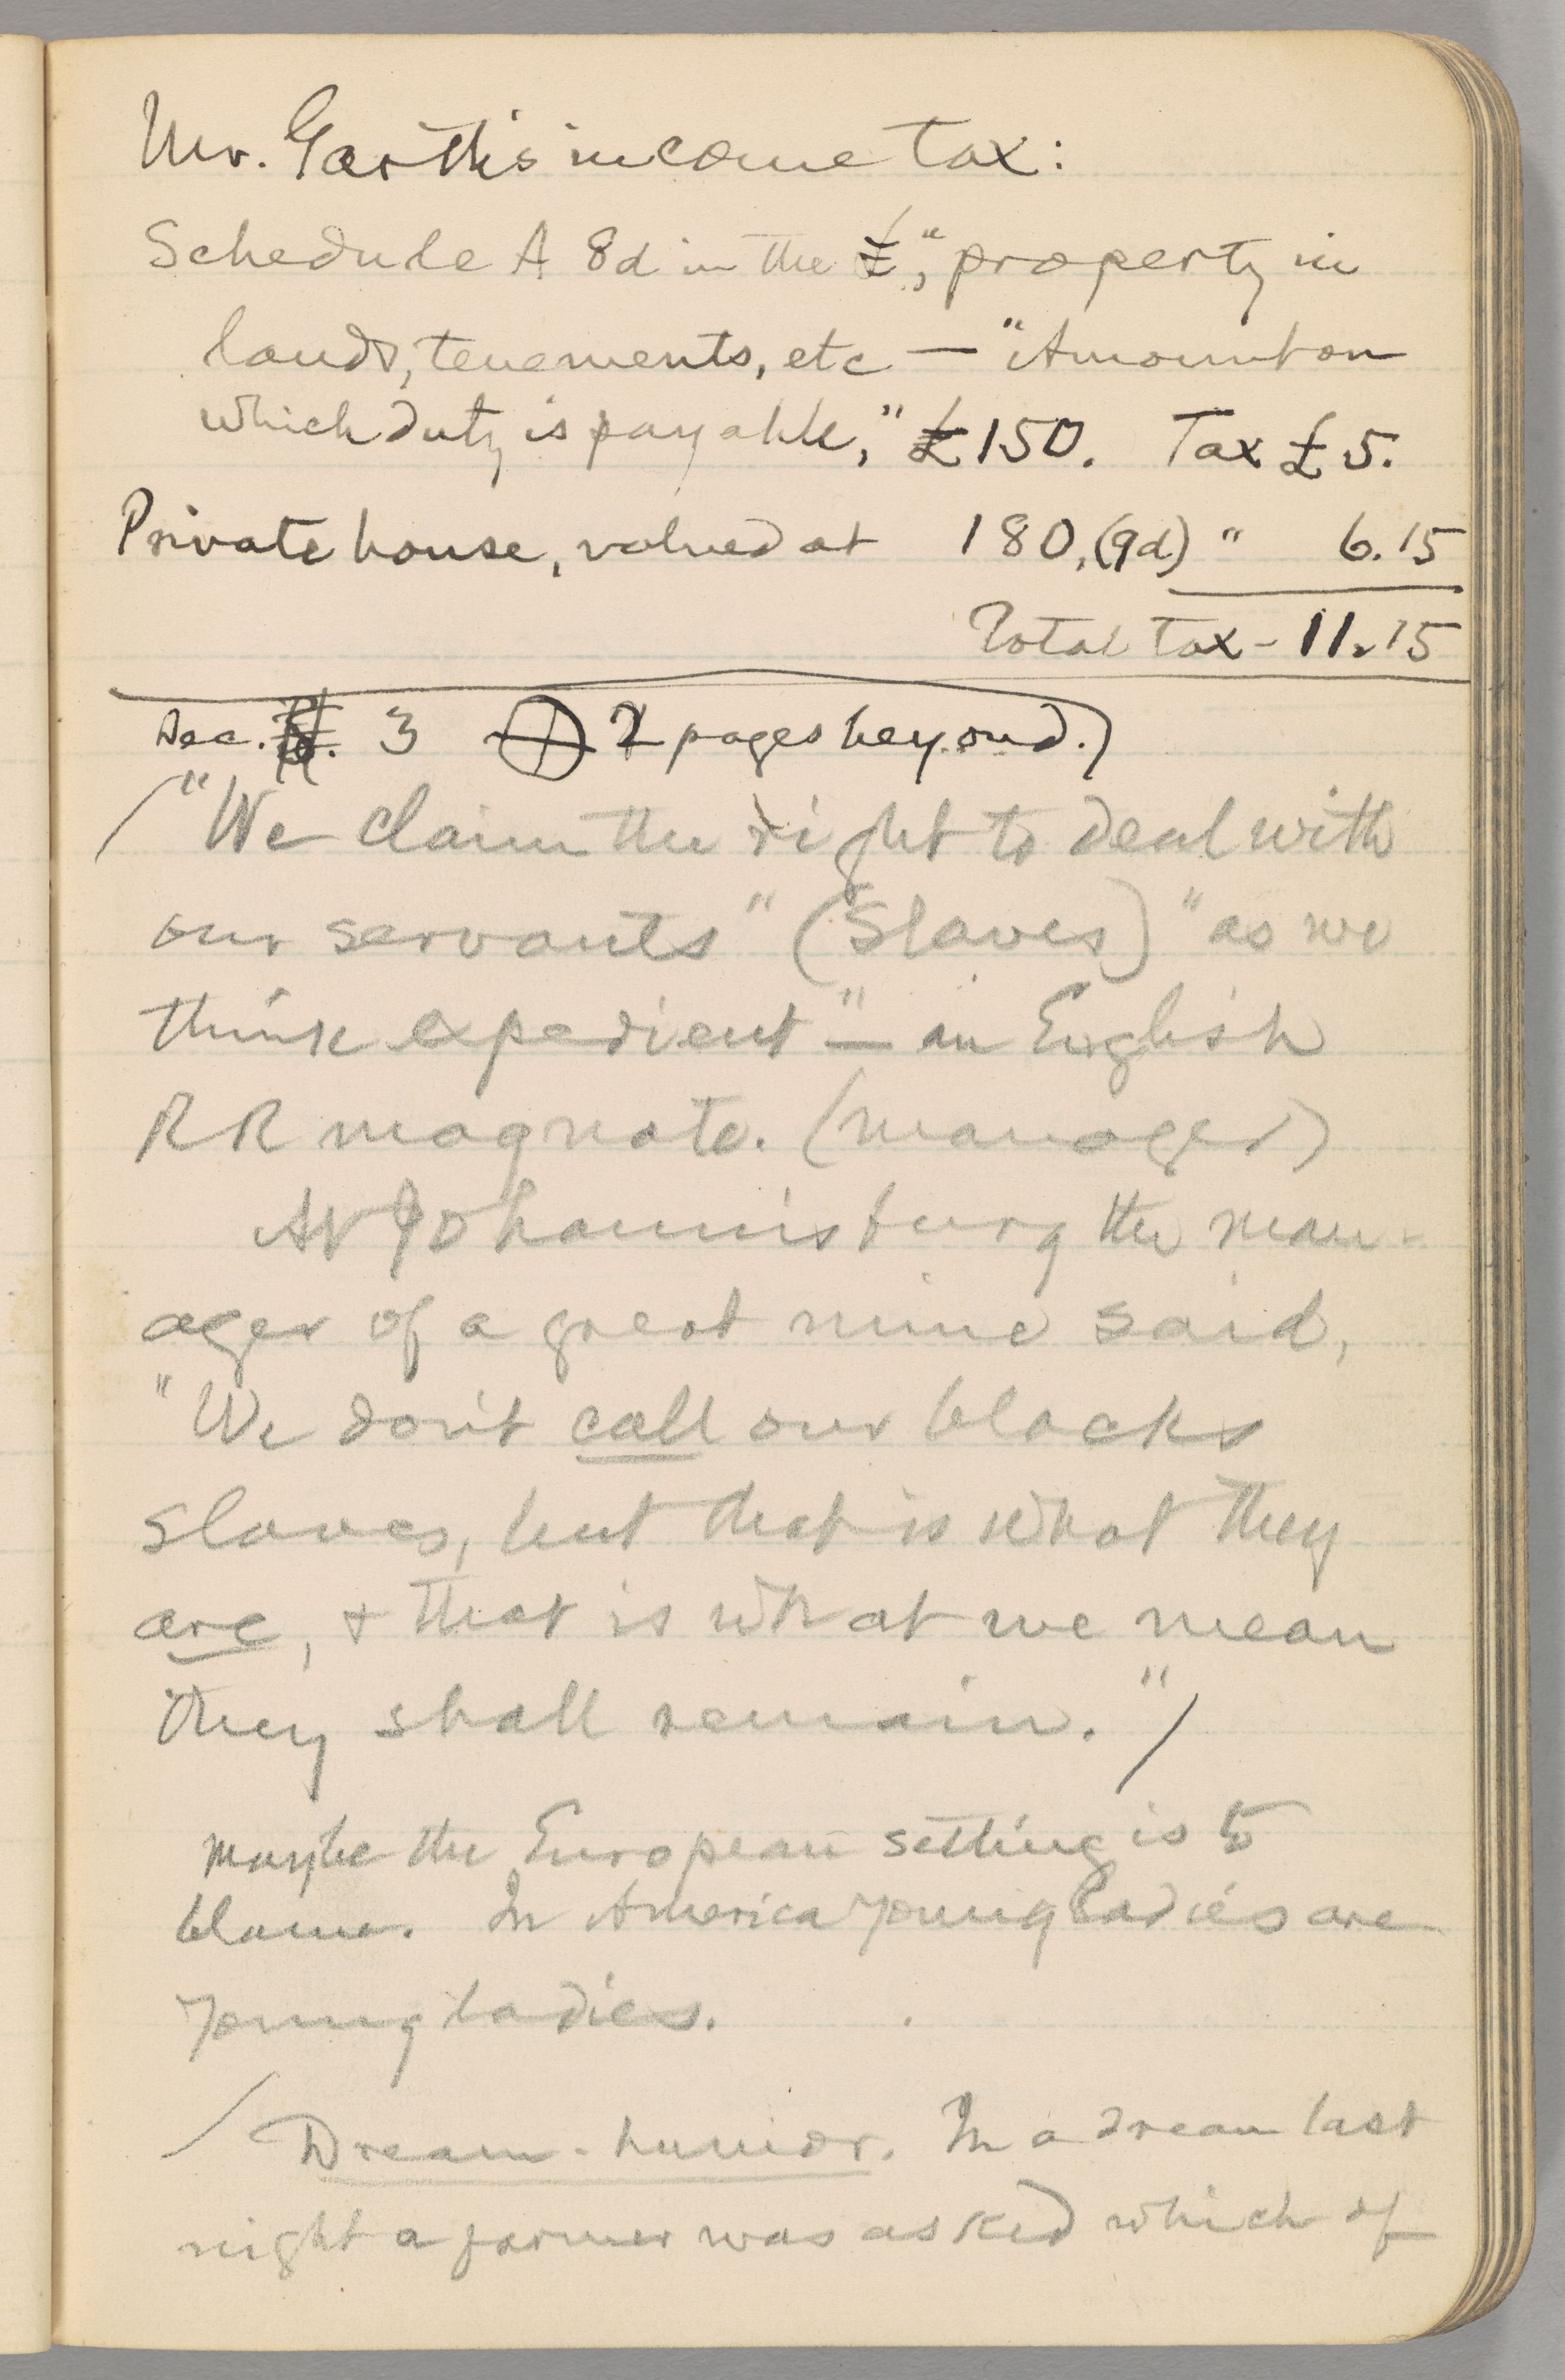 Mr. Garth's income tax:
Schedule A 8d in the £, "property in
lands, tenements, etc — "Amount on
which duty is payable," £150. Tax £5.
Private house, valued at 180, (9d) " 6.15
Total tax - 11.15
Dec. 3 ⊕ 2 pages beyond.)
/ "We claim the right to deal with
our servants" (Slaves) "as we
think expedient" — an English
RR magnate. (manager)
At Johannisburg the man-
ager of a great mine said,
"We don't call our blacks
slaves, but that is what they
are, & that is what we mean
they shall remain." /
Maybe the European setting is to
blame. In America young ladies are
young ladies.
/ Dream-humor. In a dream last
night a farmer was asked which of